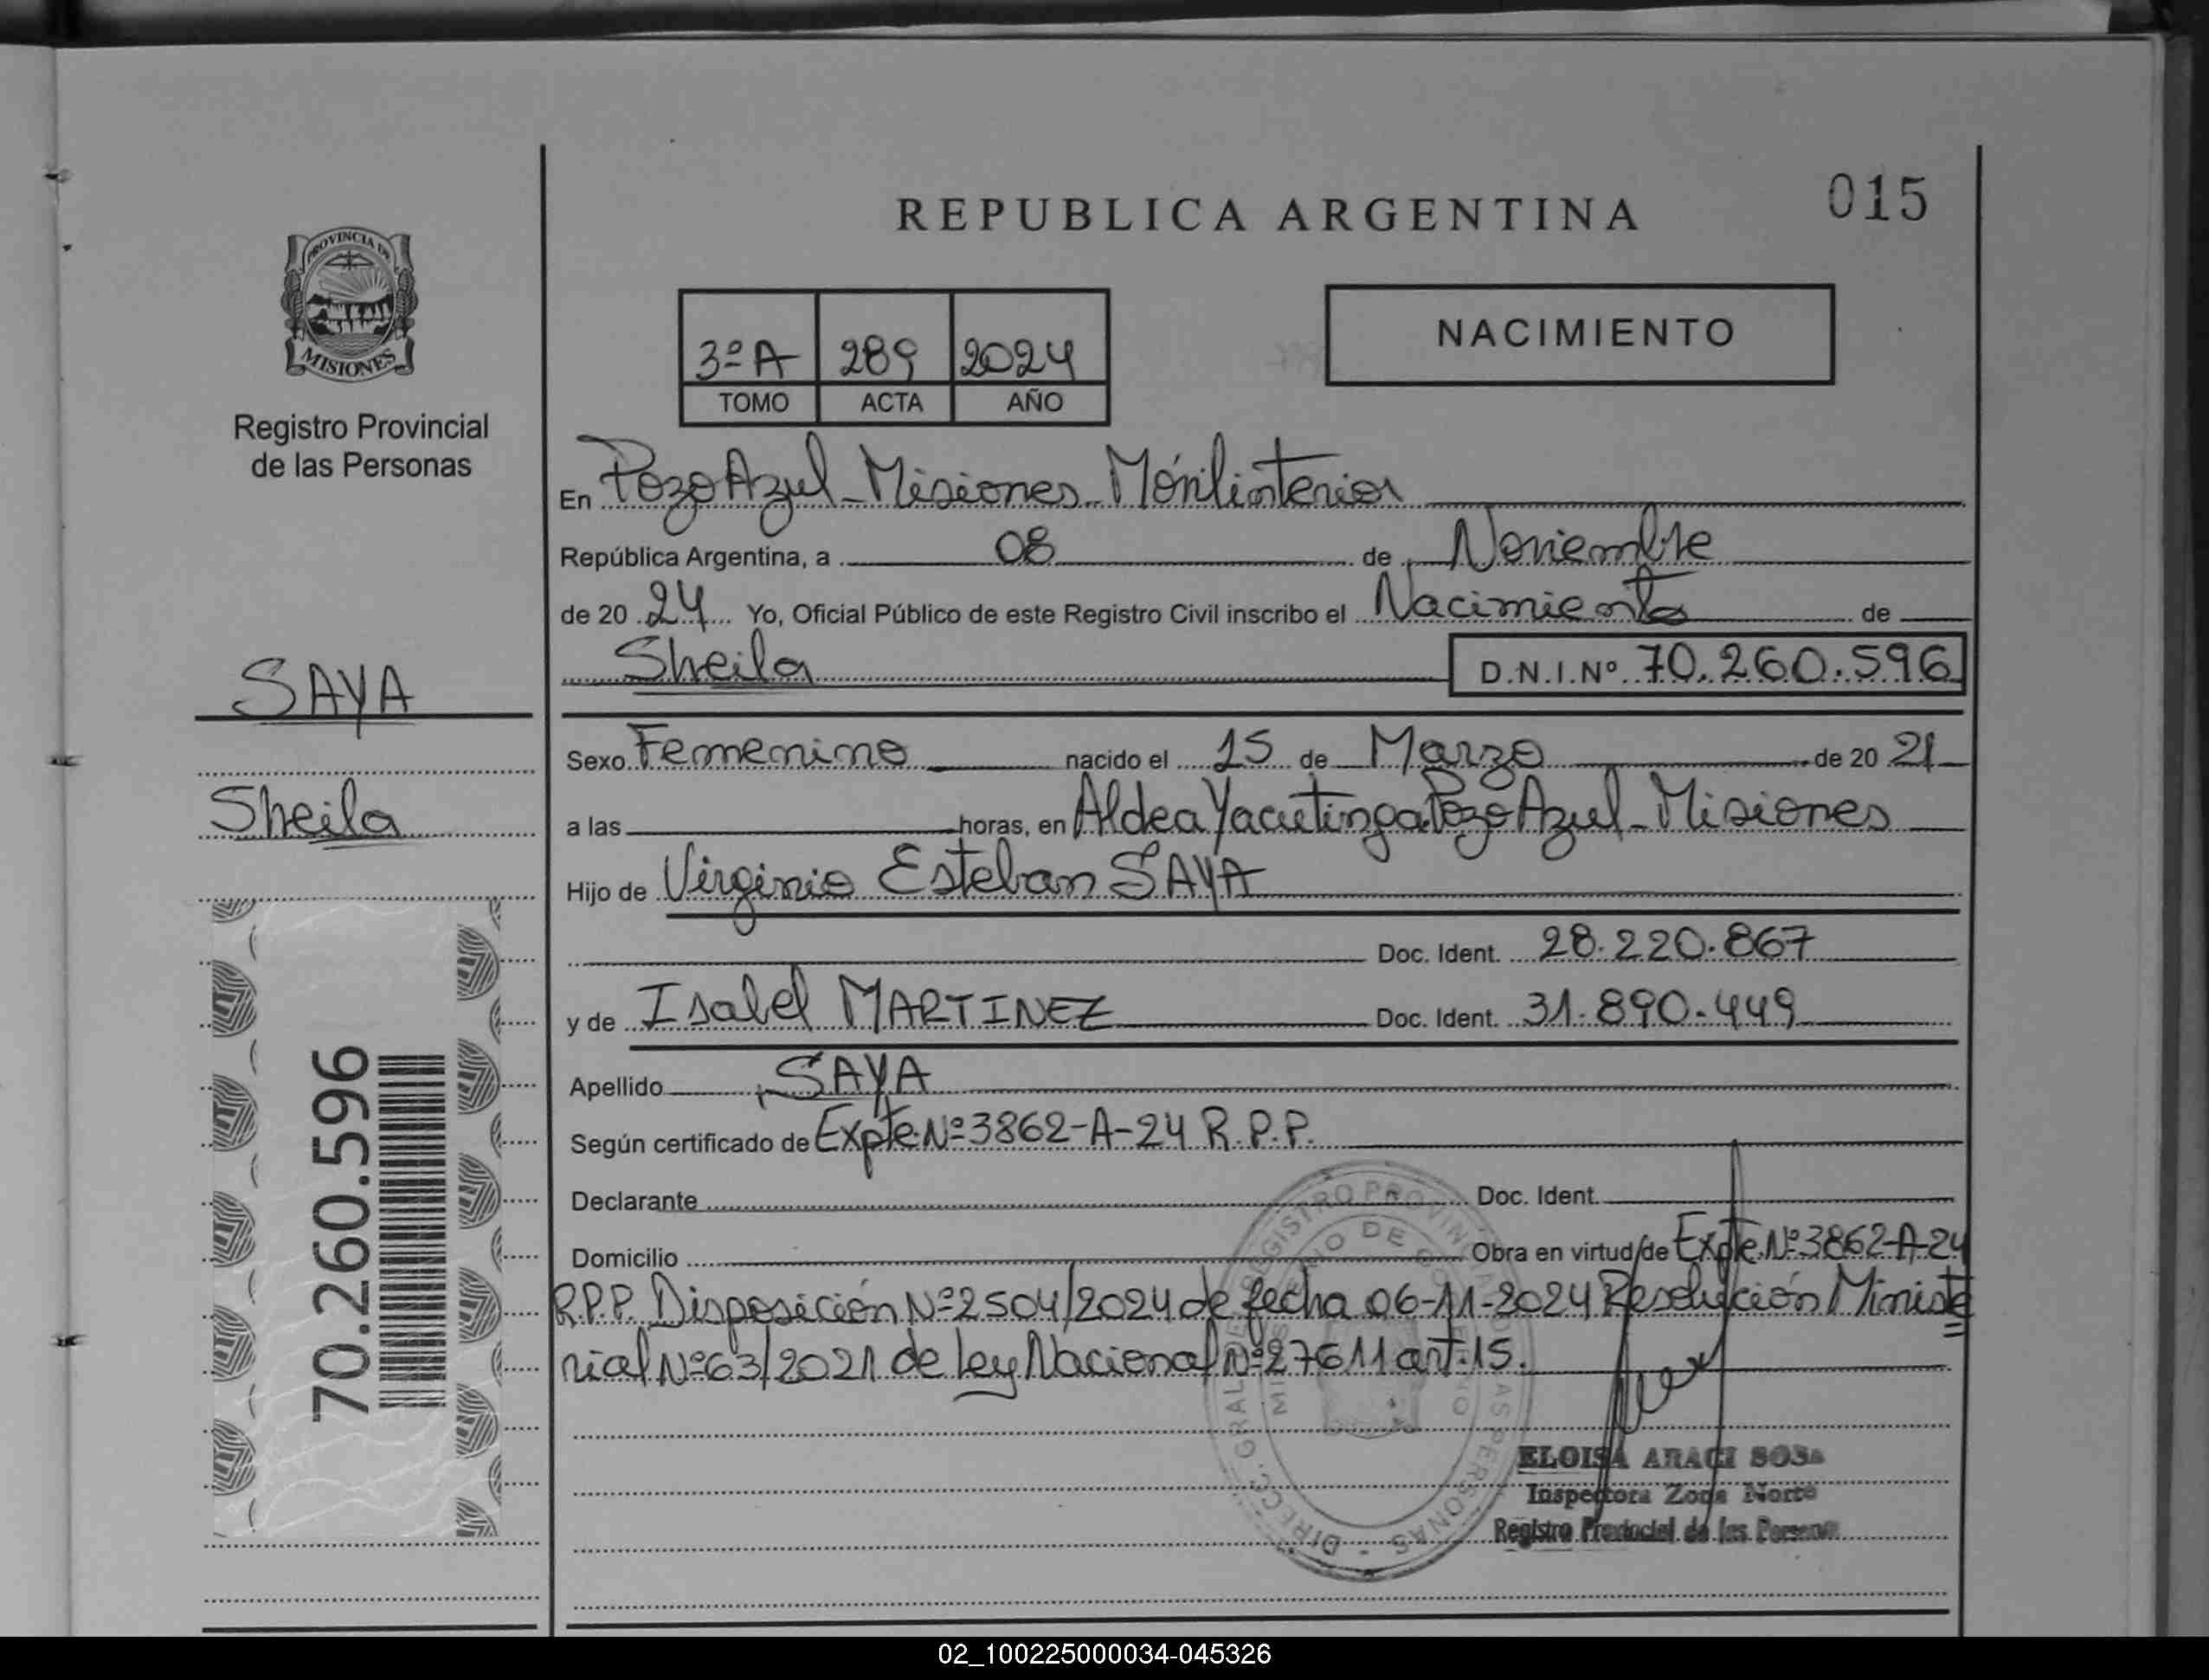 REPUBLICA ARGENTINA
015
PROVINCIA DE
MISIONES
Registro Provincial
de las Personas
3º A 289 2024
TOMO ACTA AÑO
NACIMIENTO
En Pozo Azul - Misiones - Móvil interior
República Argentina, a 08 de Noviembre
de 20 24 Yo, Oficial Público de este Registro Civil inscribo el Nacimiento de
Sheila D.N.I.Nº 70.260.596
SAYA
Sheila
70.260.596
Sexo Femenino nacido el 15 de Marzo de 20 21
a las horas, en Aldea Yacutinga Pozo Azul - Misiones
Hijo de Virginio Esteban SAYA
Doc. Ident. 28.220.867
y de Isabel MARTINEZ Doc. Ident. 31.890.449
Apellido SAYA
Según certificado de Expte. Nº 3862-A-24 R.P.P.
Declarante Doc. Ident.
Domicilio Obra en virtud de Expte. Nº 3862-A-24
R.P.P. Disposición Nº 2504/2024 de fecha 06-11-2024 Resolución Ministe
rial Nº 63/2021 de Ley Nacional Nº 27611 art. 15.
ELOISA ARACI SOSA
Inspectora Zona Norte
Registro Provincial de las Personas
02_100225000034-045326